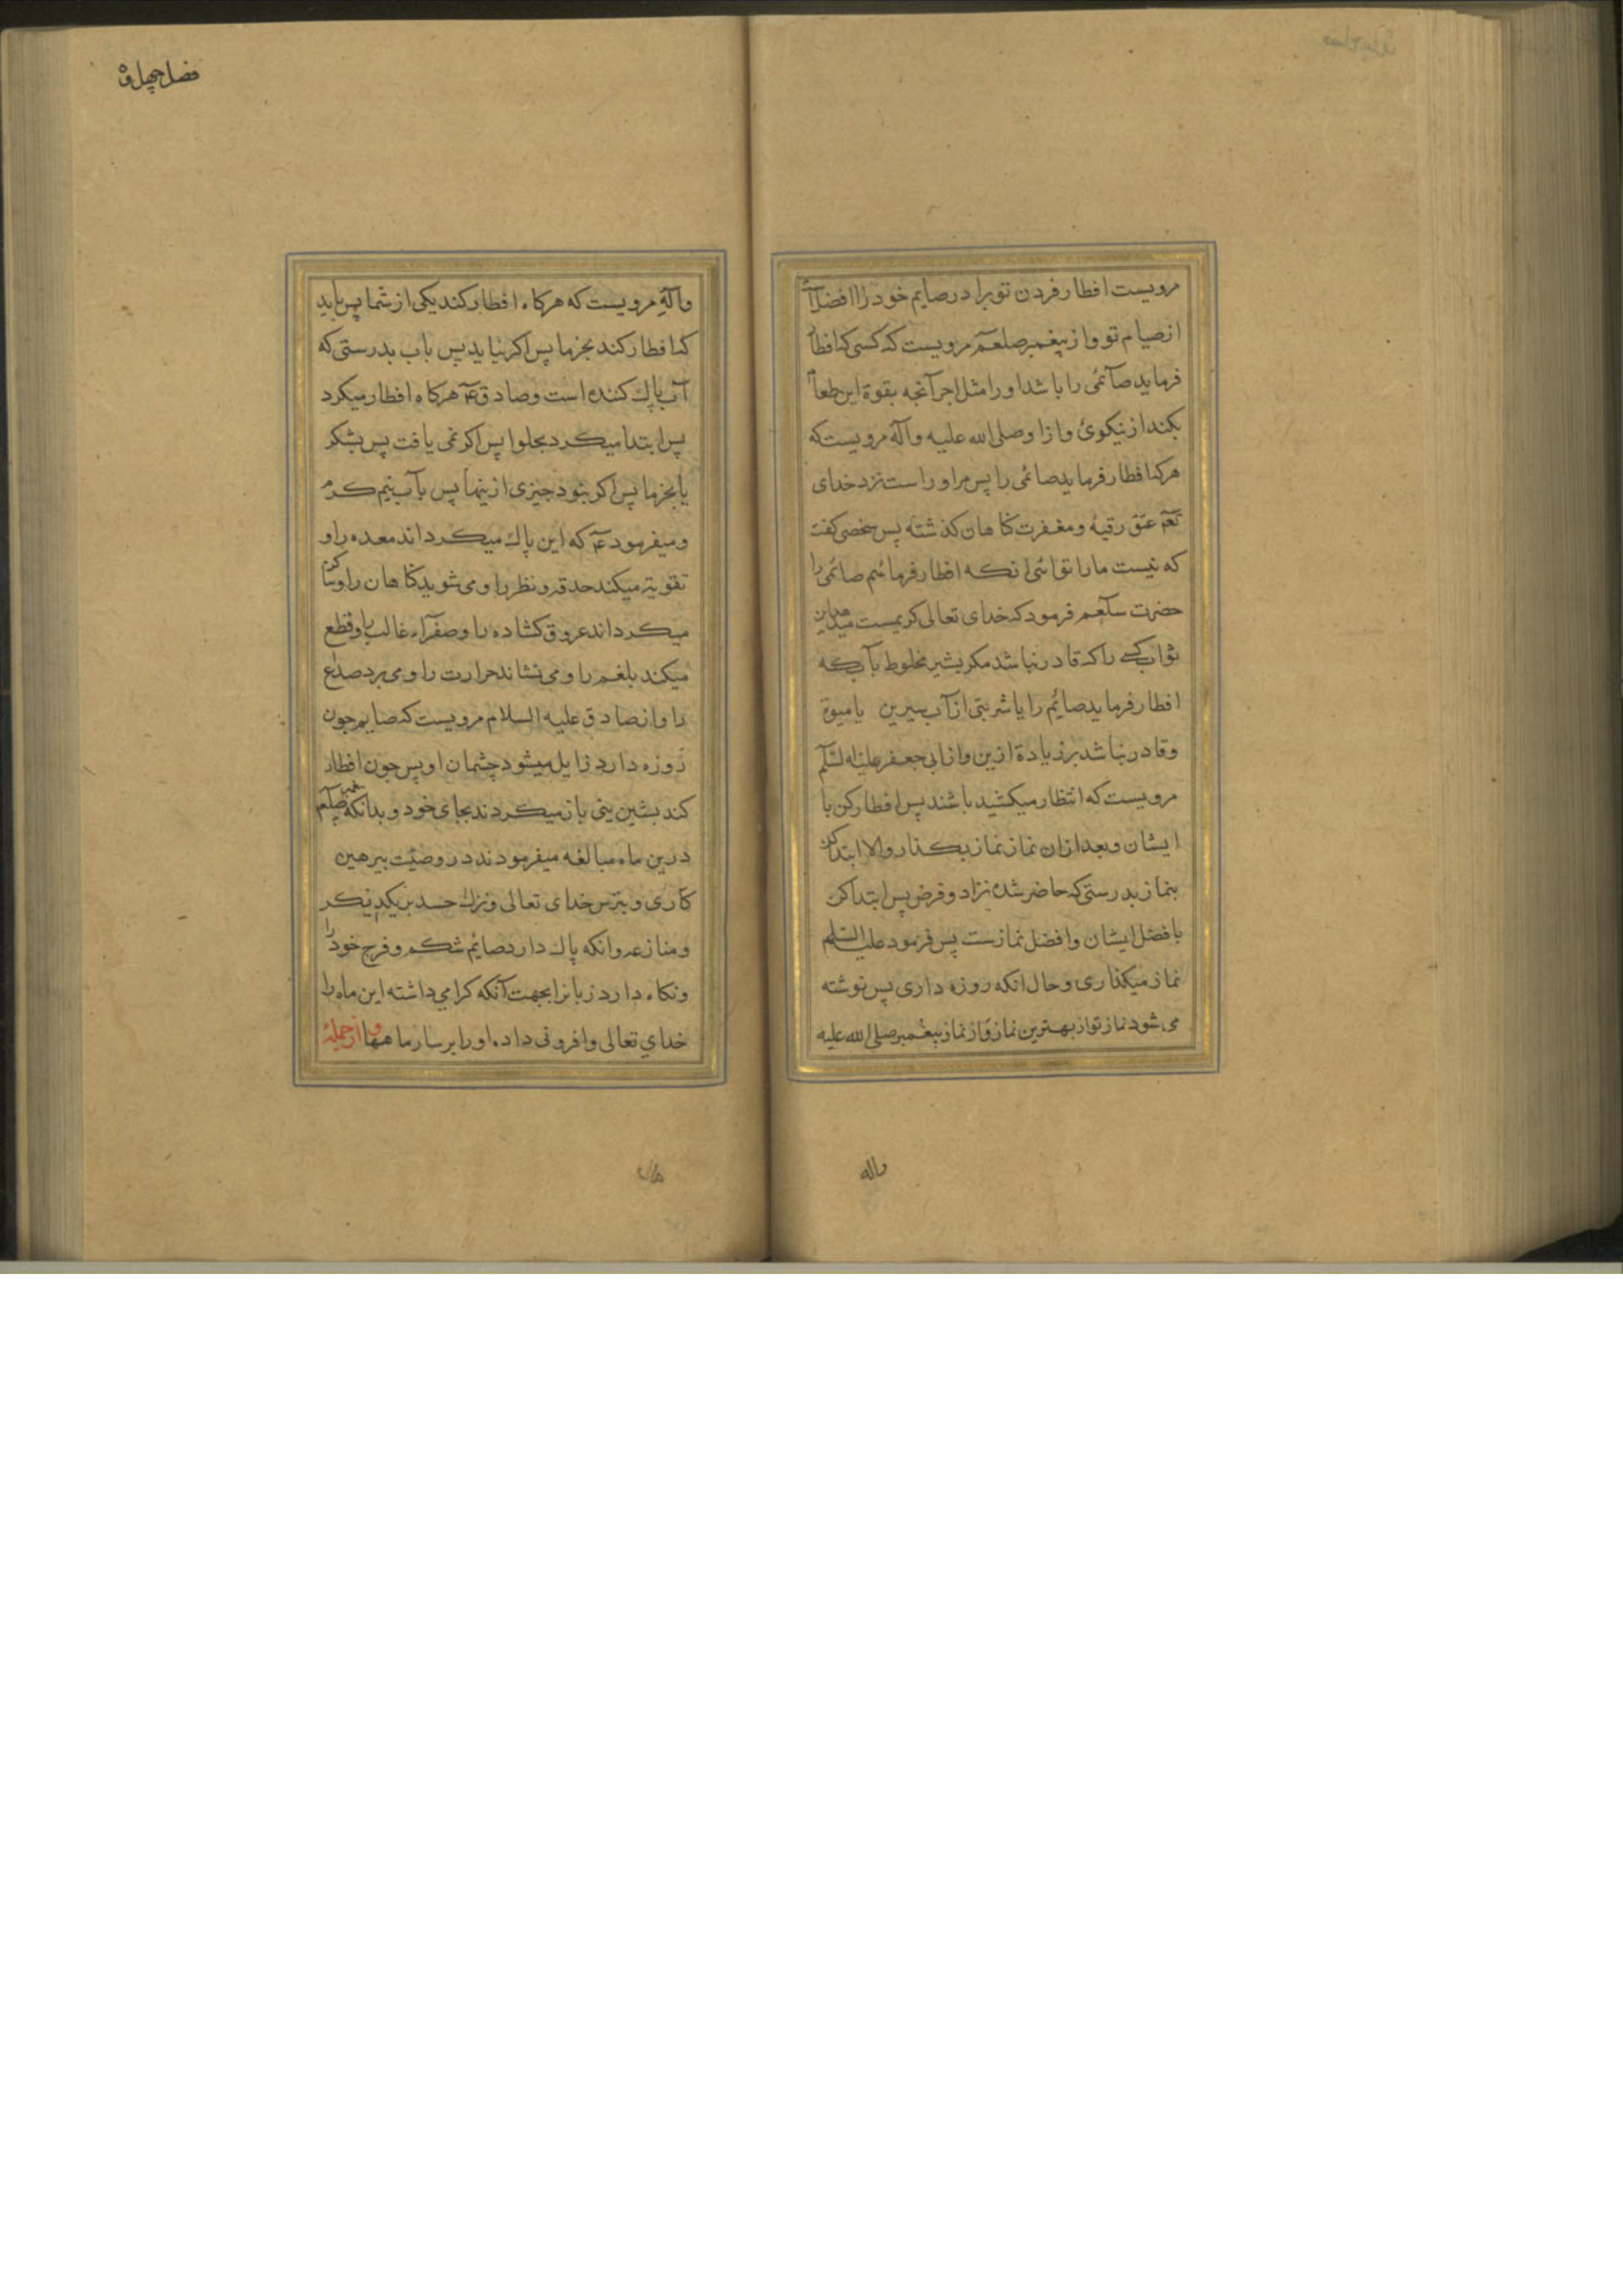 مرویست افطار فردن تو برادر صایم خود را افضل است
از صیام تو و از پیغمبر صلعم مرویست که کسی که افطار
فرماید صآئمی را باشد او را مثل اجر آنجه بقوة این طعام
بکند از نیکوئ و از او صلی الله علیه وآله مرویست که
هرکه افطار فرماید صائمی را پس مر او راست نزد خدای
تعم عتق رقبهٔ و مغفرت کناهان کذشته پس شخصی کفت
که نیست ما را توانئی انکه افطار فرمائیم صائمی را
حضرت سلعم فرمود که خدای تعالی کریمست میدهد این
ثواب کسی را که قادر نباشد مکر بشیر مخلوط بآب که
افطار فرماید صائم را یا شربتی از آب سیرین یا میوهٔ
وقادر نباشد بر زیادهٔ ازین و از ابی جعفر علیه السلم
مرویست که انتظار میکشید باشند پس افطار کن با
ایشان و بعد از ان نماز نماز بکذار والا ابتدا کن
بنماز بدرستی که حاضر شده نزاد و فرض پس ابتدا کن
بافضل ایشان و افضل نمازست پس فرمود علیه السلم
نماز میکذاری و حال انکه روزه داری پس نوشته
می شود نماز تو از بهترین نماز و از نماز پیغمبر صلی الله علیه
واله
فصل چهل و
وآلهٖ مرویست که هرکاه افطار کند یکی از شما پس باید
که افطار کند بخرما پس اکر نیاید پس باب بدرستی که
آب پاك کننده است و صادق ع هرکاه افطار میکرد
پس ابتدا میکرد بحلوا پس اکر نمی یافت پس بشکر
یا بخرما پس اکر نبود جیزی ازینها پس بآب نیم کرم
و میفرمود ع که این پاك میکرداند معده را و
تقویة میکند حدقه و نظر را و می شوید کناهان را و ساکن
میکرداند عروق کشاده را و صفرآء غالب را و قطع
میکند بلغم را و می نشاند حرارت را و می برد صداع
را و از صادق علیه السلام مرویست که صایم جون
روزه دارد زایل میشود چشمان او پس جون افطار
کند بشیرینی باز میکردند بجای خود و بدانکه پیغمبر صلعم
درین ماه مبالغه میفرمودند در وصیّت بپرهیز
کاری و بترس خدای تعالی و ترك حسد بر یکدیکر
و منازعه و انکه پاك دارد صائم شکم و فرج خود را
و نکاه دارد زبانرا بجهت آنکه کرامي داشته این ماه را
خداي تعالی و افزونی داده او را بر سایر ماهها و از جملهٔ